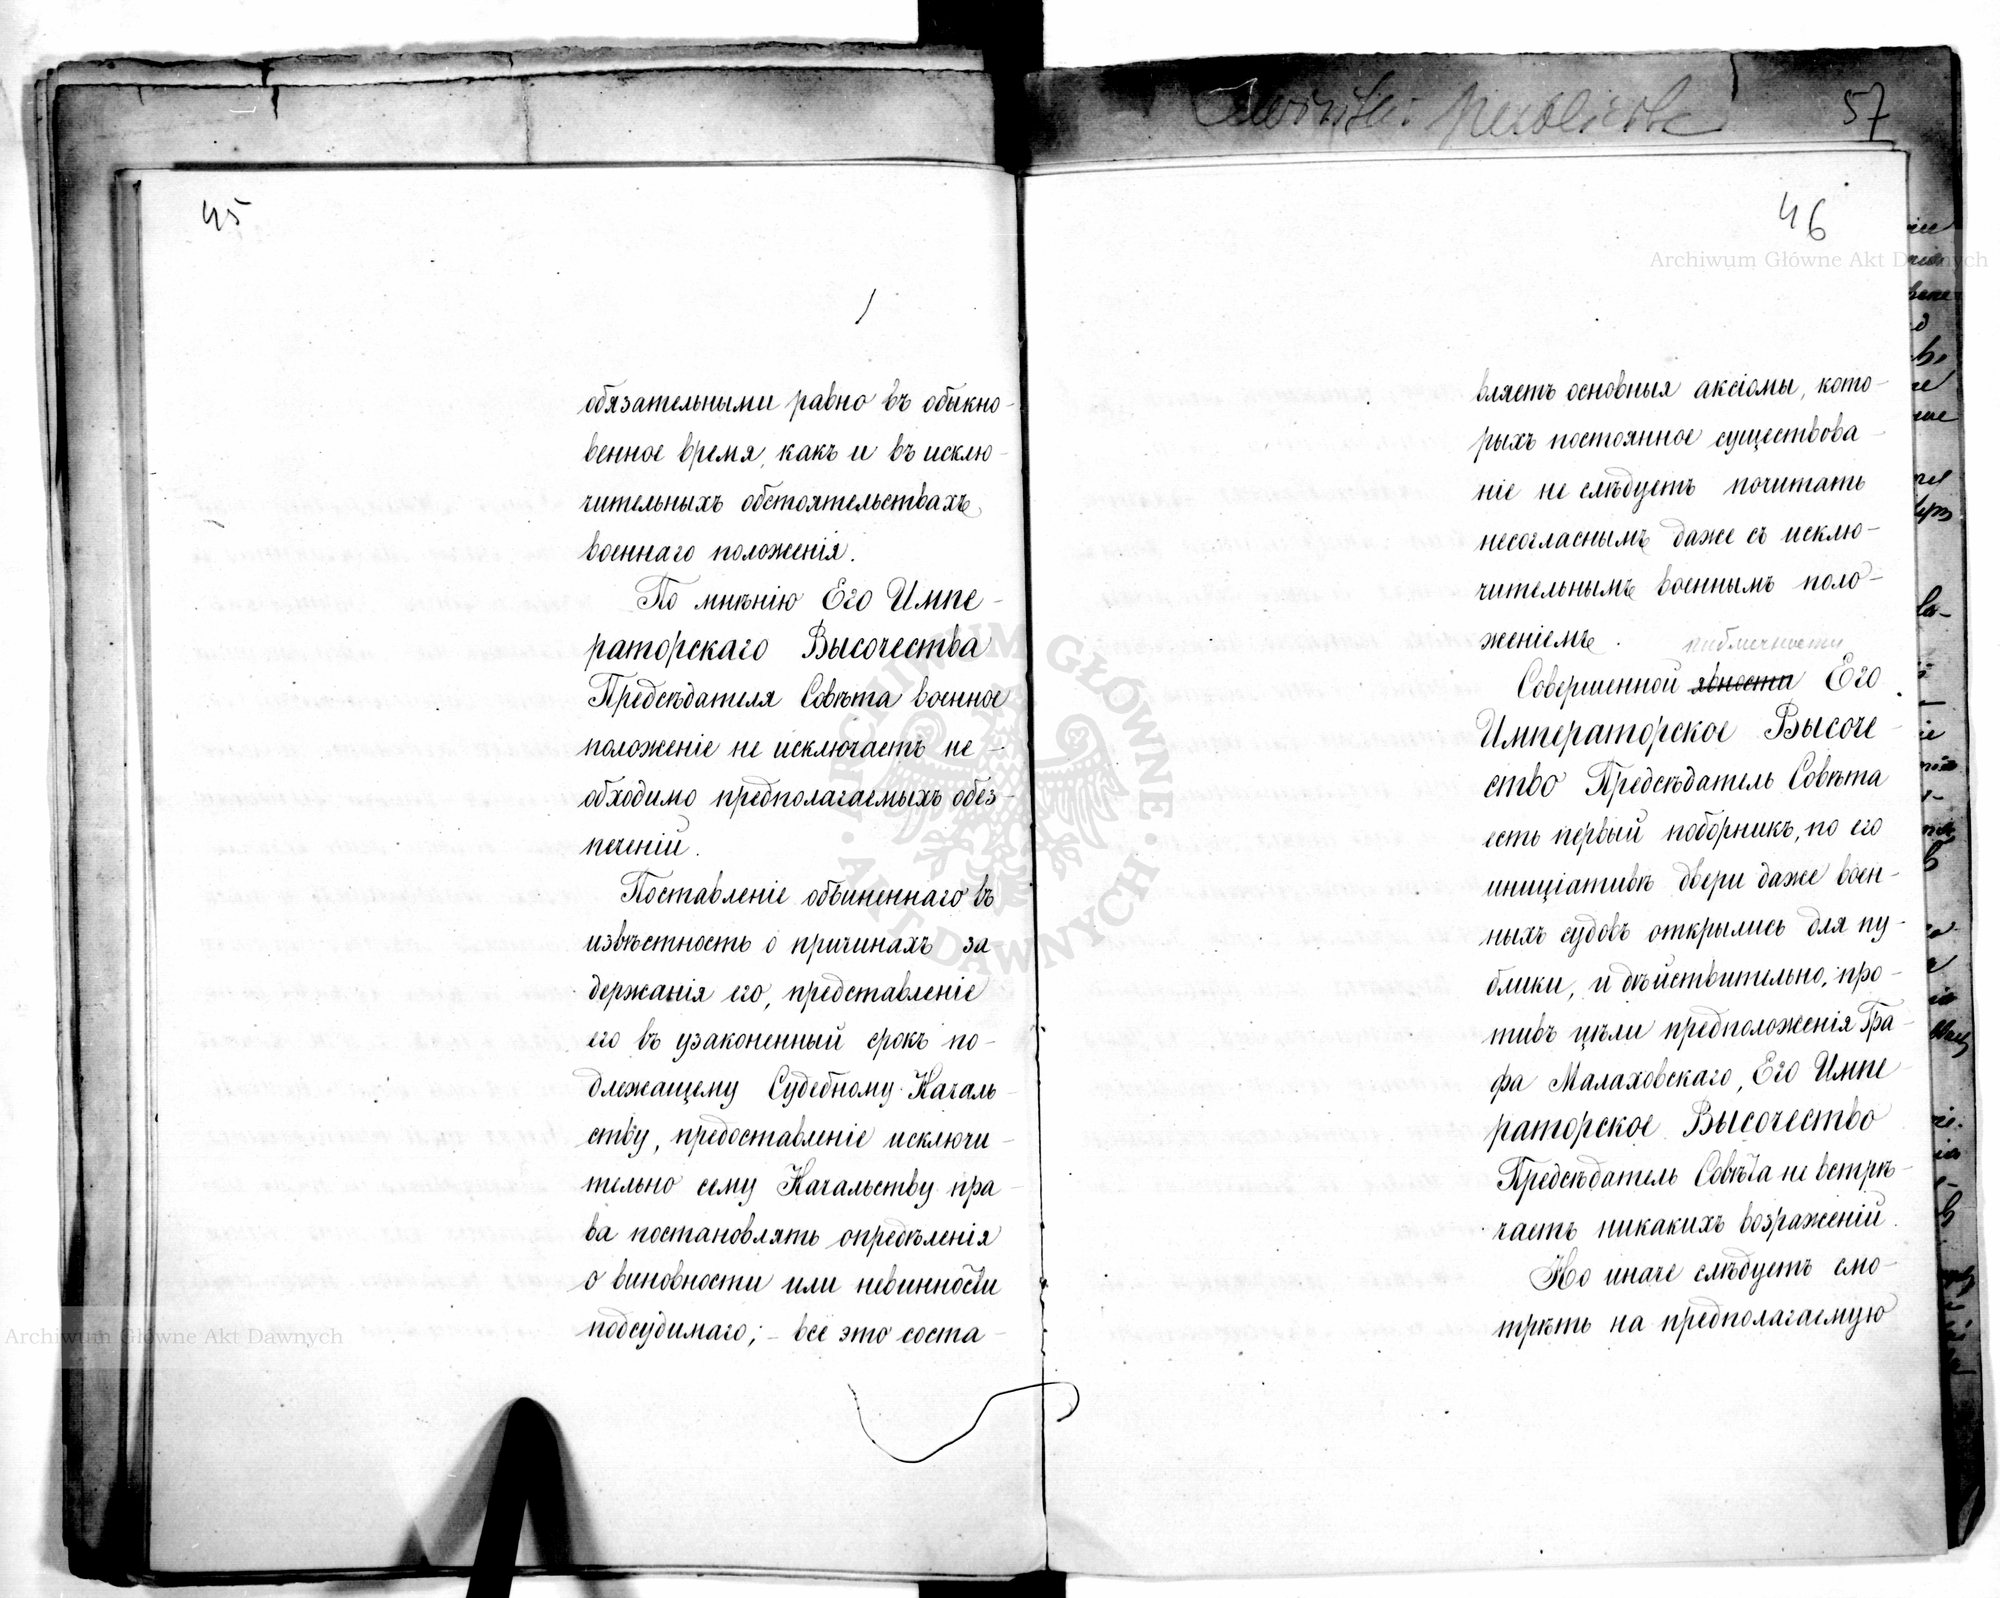 45
обязательными равно въ обыкно-
венное время, какъ и въ исклю-
чительныхъ обстоятельствахъ
военнаго положенія.
По мнѣнію Его Импе-
раторскаго Высочества
Предсѣдателя Совѣта военное
положеніе не исключаетъ не-
обходимо предполагаемыхъ обез-
печеній.
Поставленіе объиненнаго въ
извѣстность о причинахъ за
держанія его, представленіе
его въ узаконенный срокъ по-
длежащему Судебному Началь-
ству, предоставленіе исключи-
тельно сему Начальству пра-
ва постановлять опредѣленія
о виновности или невинности
подсудимаго; - все это соста-
57
46
вляетъ основныя аксіомы, кото-
рыхъ постоянное существова-
ніе не слѣдуетъ почитать
несогласнымъ даже съ исклю-
чительнымъ военнымъ поло-
женіемъ.
публичности
Совершенной явности Его
Императорское Высоче-
ство Предсѣдатель Совѣта
есть первый поборникъ, по его
иниціативѣ двери даже воен-
ныхъ судовъ открылись для пу-
блики, и дѣйствительно, про-
тивъ цѣли предположенія Гра-
фа Малаховскаго, Его Импе-
раторское Высочество
Предсѣдатель Совѣта не встрѣ-
чаетъ никакихъ возраженій.
Но иначе слѣдуетъ смо-
трѣть на предполагаемую
Archiwum Główne Akt Dawnych
Archiwum Główne Akt Dawnych
ARCHIWUM GŁÓWNE AKT DAWNYCH